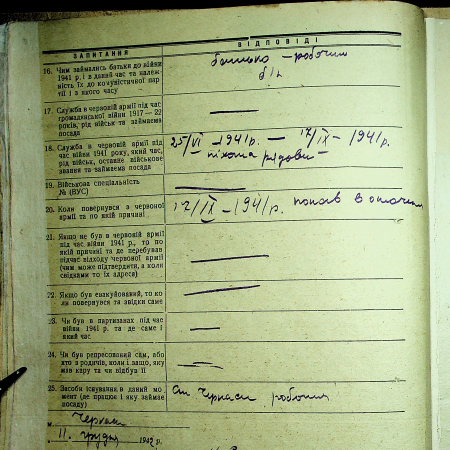 ЗАПИТАННЯ
ВІДПОВІДІ
16. Чим займались батьки до війни
1941 р. і в даний час та належ-
ність їх до комуністичної пар-
тії і з якого часу
батько – робочий
б/п
17. Служба в червоній армії під час
громадянської війни 1917—22
років, рід військ та займаема
посада
—
18. Служба в червоній армії під
час війни 1941 року, який час,
рід військ, останнє військове
звання та займаема посада
25/VI – 1941р. — 17/IX – 1941р.
піхота рядовий
19. Військова спеціальність
№ (ВУС)
—
20. Коли повернувся з червоної
армії та по якій причині
17/IX – 1941р. попав в оточення
21. Якщо не був в червоній армії
під час війни 1941 р., то по
якій причині та де перебував
підчас відходу червоної армії
(чим може підтвердити, а коли
свідками то їх адреса)
—
22. Якщо був евакуйований, то ко-
ли повернувся та звідки саме
—
23. Чи був в партизанах під час
війни 1941 р. та де саме і
який час
—
24. Чи був репресований сам, або
хто в родичів, коли і защо, яку
мав кару та чи відбув її
—
25. Засоби існування в даний мо-
мент (де працює і яку займає
посаду)
ст. Черкаси робочий
м. Черкаси
„11„ грудня 1942 р.